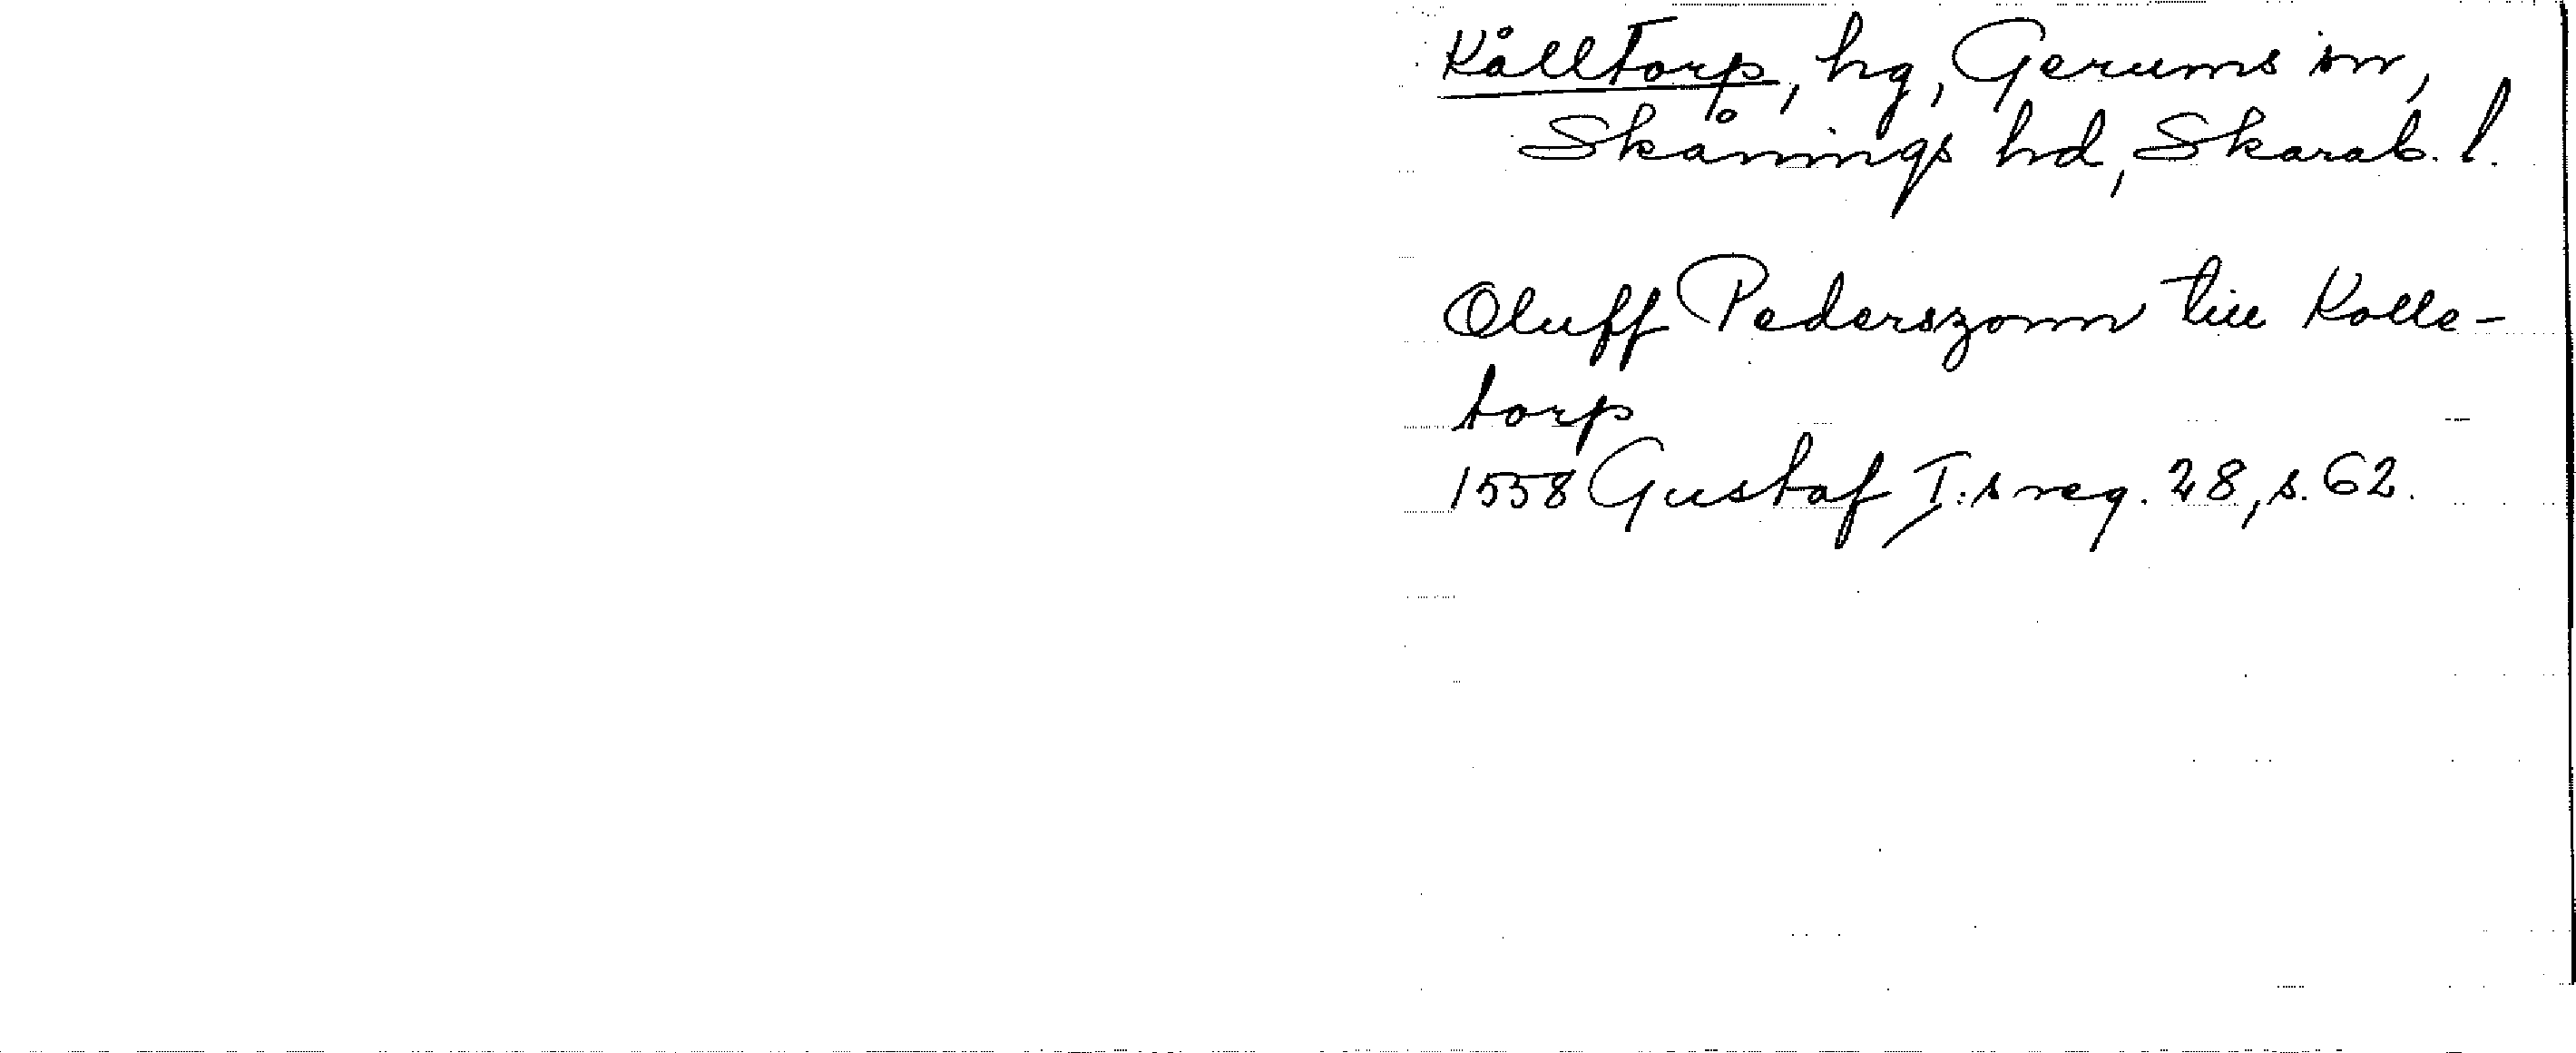 Kålltorp, hg, Gerums sn,
Skånings hd, Skarab. l.
Oluff Pederszonn till Kolle-
torp
1558 Gustaf I:s reg. 28, s. 62.